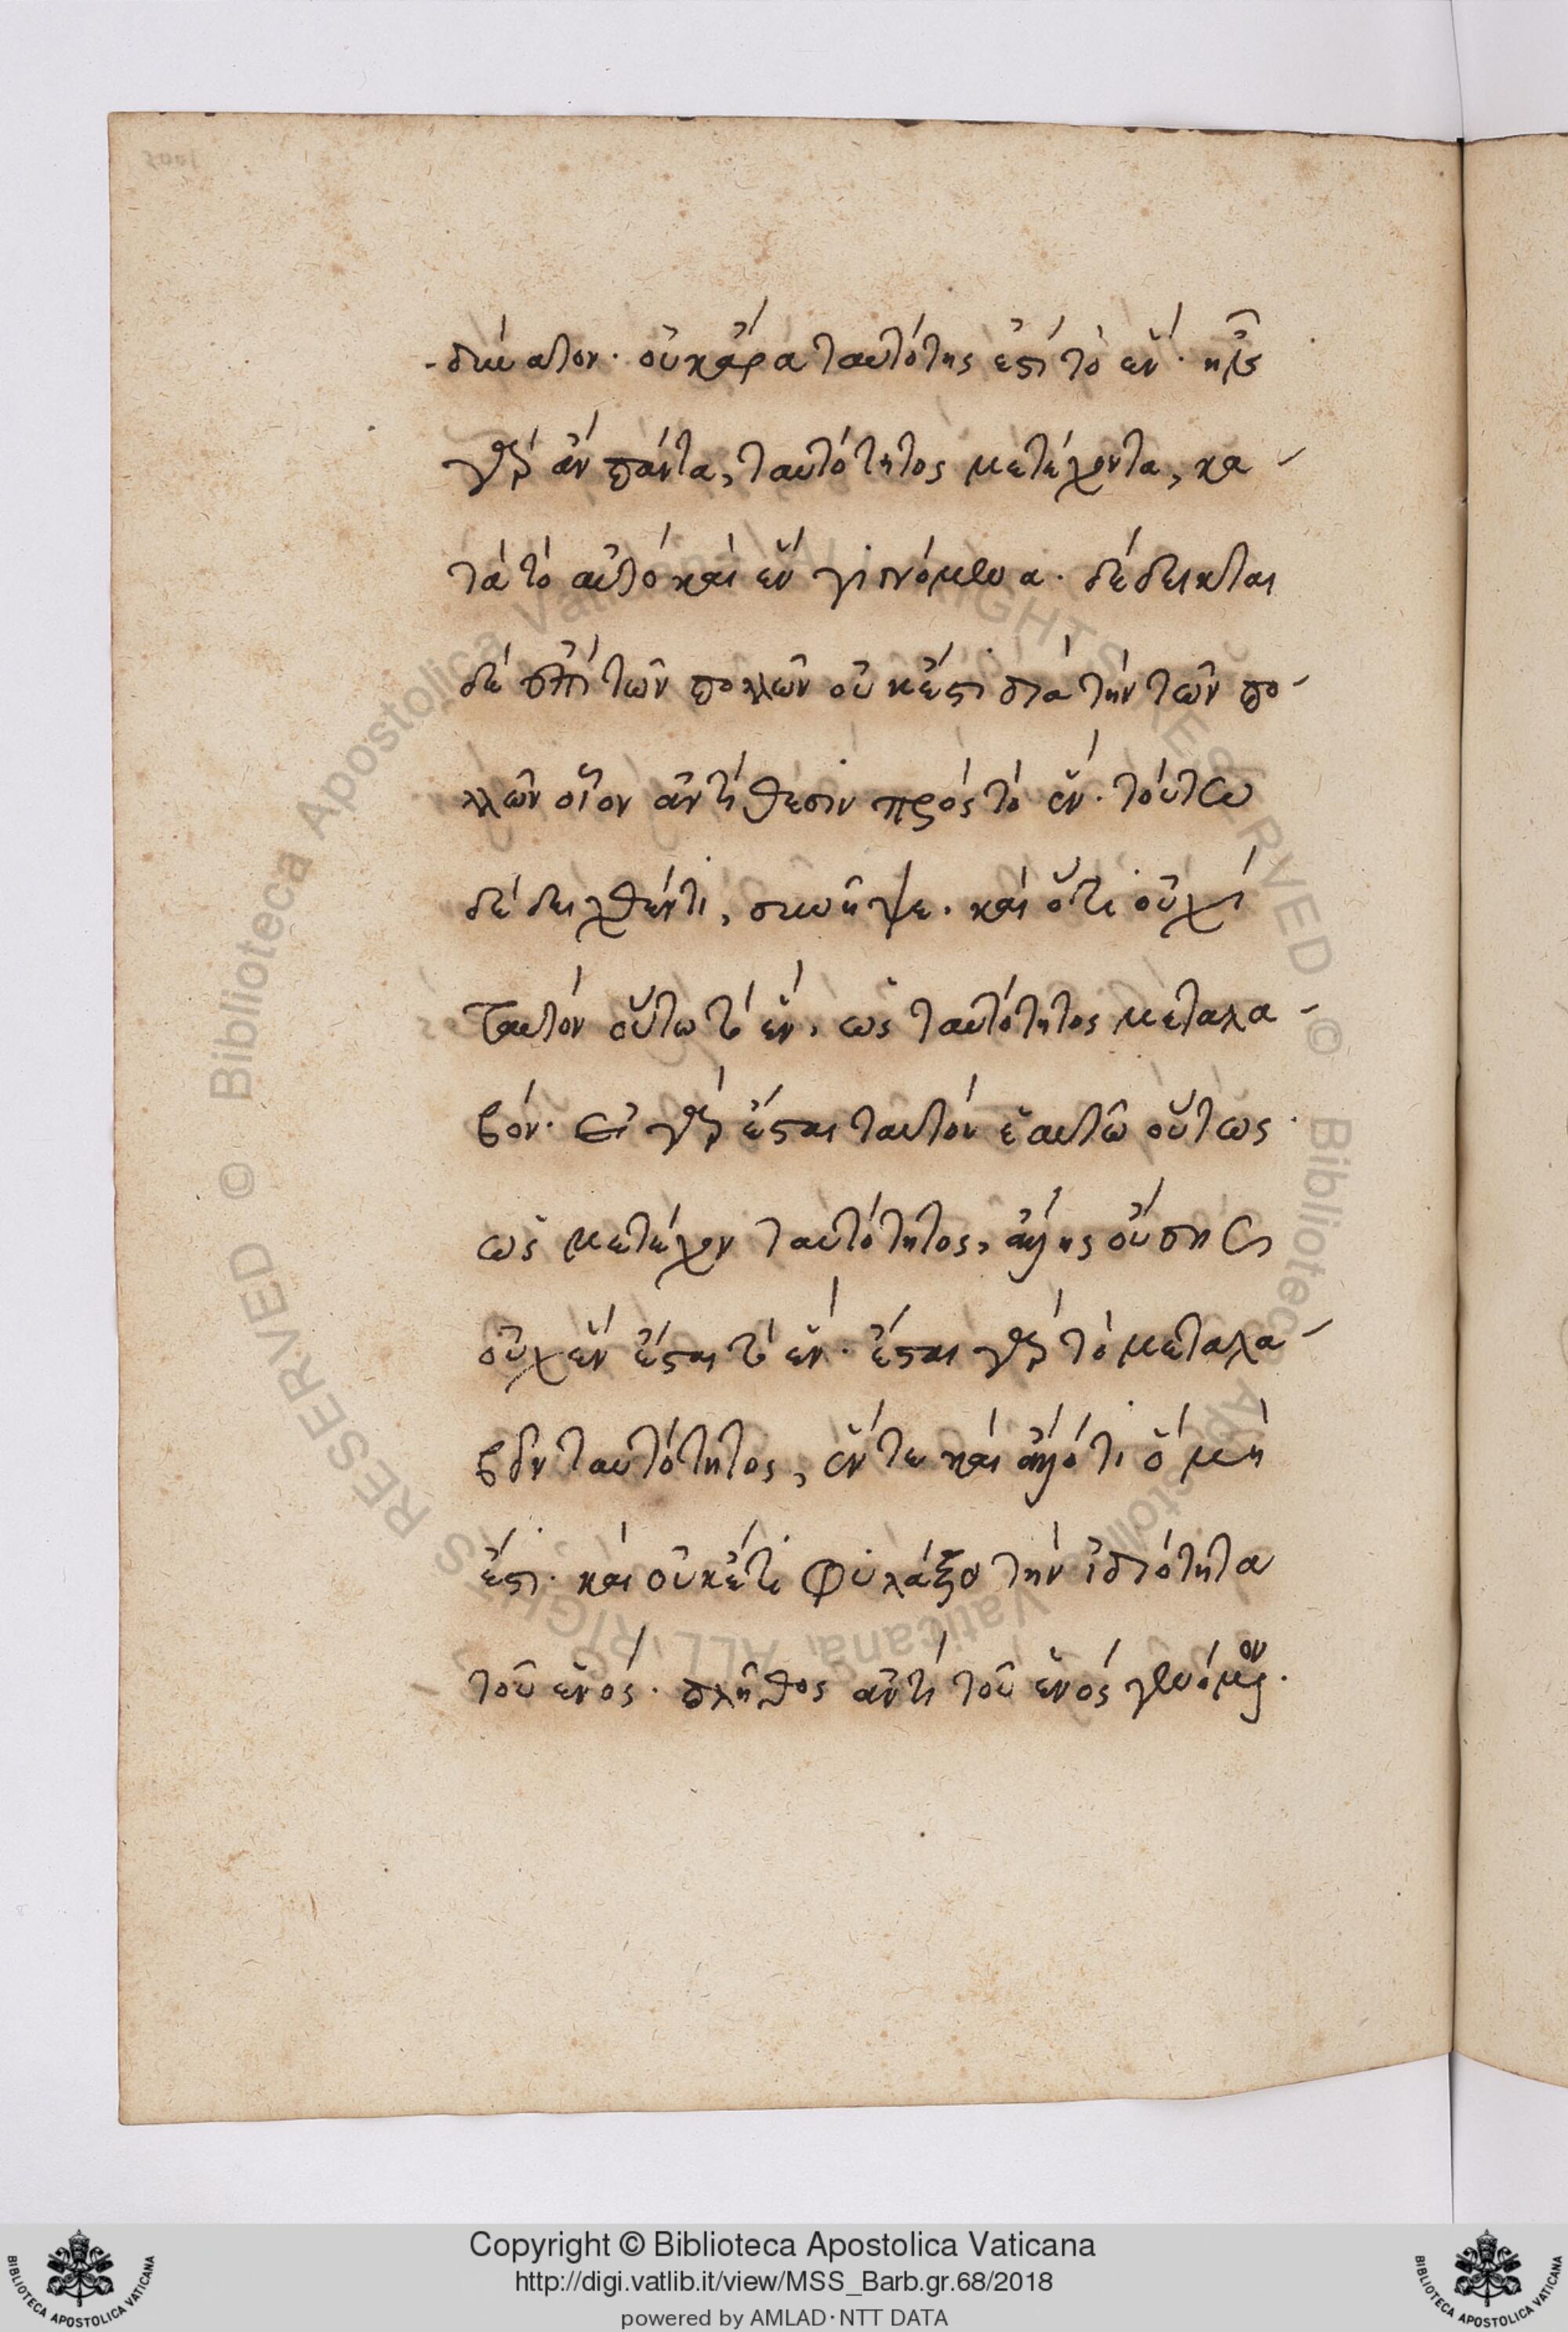 -δυνατον· οὐκ ἄρα ταυτότης ἐστὶ τὸ ἕν· ἦν
γὰρ ἂν πάντα, ταυτότητος μετέχοντα, κα-
τὰ τὸ αὐτὸ καὶ ἓν γινόμενα· δέδεικται
δὲ ἐπὶ τῶν πολλῶν οὐκ ἔστι διὰ τὴν τῶν πο-
λλῶν οἷον ἀντίθεσιν πρὸς τὸ ἕν· τούτω
δὲ δειχθέντι, συνῆψε· καὶ ὅτι οὐχὶ
ταυτὸν οὕτω τὸ ἕν, ὡς ταυτότητος μεταλα-
βόν· εἰ γὰρ ἔσται ταυτὸν ἑαυτῶ οὕτως
ὡς μετέχον ταυτότητος, ἄλλης οὔσης
οὐχ ἓν ἔσται τὸ ἕν· ἔσται γὰρ τὸ μεταλα-
βὸν ταυτότητος, ἕν τε καὶ ἄλλό τι ὃ μὴ
ἔστι· καὶ οὐκέτι φυλάξει τὴν ἰδιότητα
τοῦ ἑνός· πλῆθος ἀντὶ τοῦ ἑνὸς γενόμενον·
Copyright © Biblioteca Apostolica Vaticana
http://digi.vatlib.it/view/MSS_Barb.gr.68/2018
powered by AMLAD·NTT DATA
BIBLIOTECA APOSTOLICA VATICANA
BIBLIOTECA APOSTOLICA VATICANA
© Biblioteca Apostolica Vaticana, ALL RIGHTS RESERVED © Biblioteca Apostolica Vaticana, ALL RIGHTS RESERVED